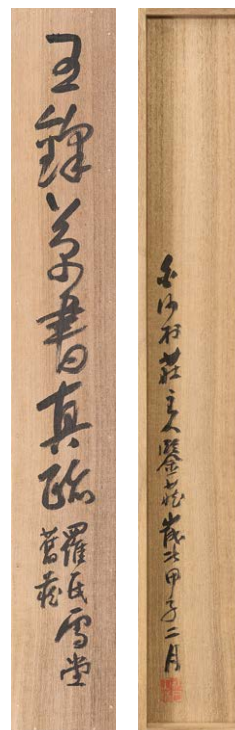 王鐸草書真跡
羅氏雪堂
舊藏
白沙村莊主人鑒藏歲次甲子二月